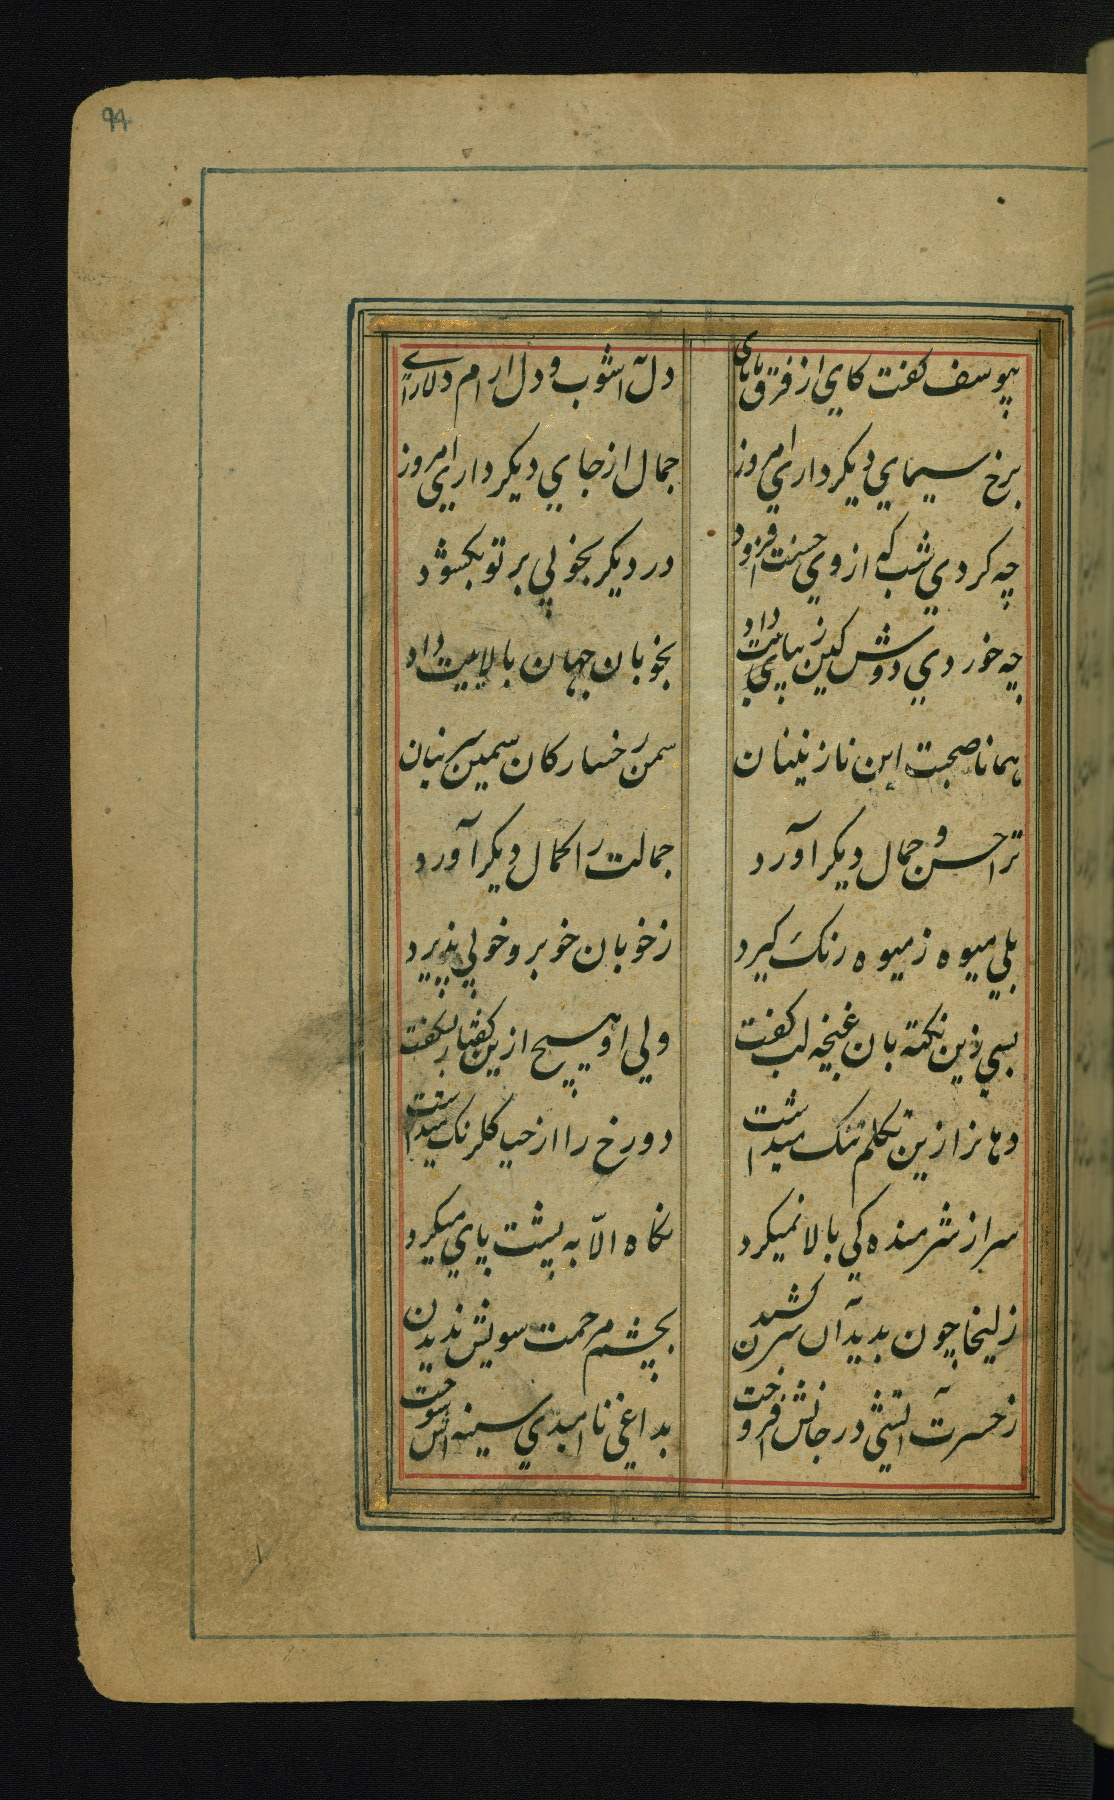 94
بیوسف کفت کای از فرق تا پای
دل آشوب و دل ارام و دلارای
برخ سیمای دیکر داری امروز
جمال از جای دیکر داری امروز
چه کردی شب که از وی حسنت افزود
در دیکر بخوبی بر تو بکشود
چه خوردی دوش کین زیباییت داد
بخوبان جهان بالاییت داد
همانا صحبت این نازنینان
سمن رخسارکان سمین سرینان
ترا حسن و جمال دیکر آورد
جمالت را کمال دیکر آورد
بلی میوه ز میوه رنک کیرد
ز خوبان خوبرو خوبی پذیرد
بسی زین نکته بان غنچه لب کفت
ولی او هیچ ازین کفتار نشکفت
دهانرا زین تکلم تنک میداشت
دو رخ را از حیا کلرنک میداشت
سر از شرمنده کی بالا نمیکرد
نکاه الّا به پشت پای میکرد
زلیخا چون بدید آن سر کشیدن
بچشم مرحمت سویش ندیدن
ز حسرت آتشی در جانش افروخت
بداغی ناامیدی سینه اش سوخت